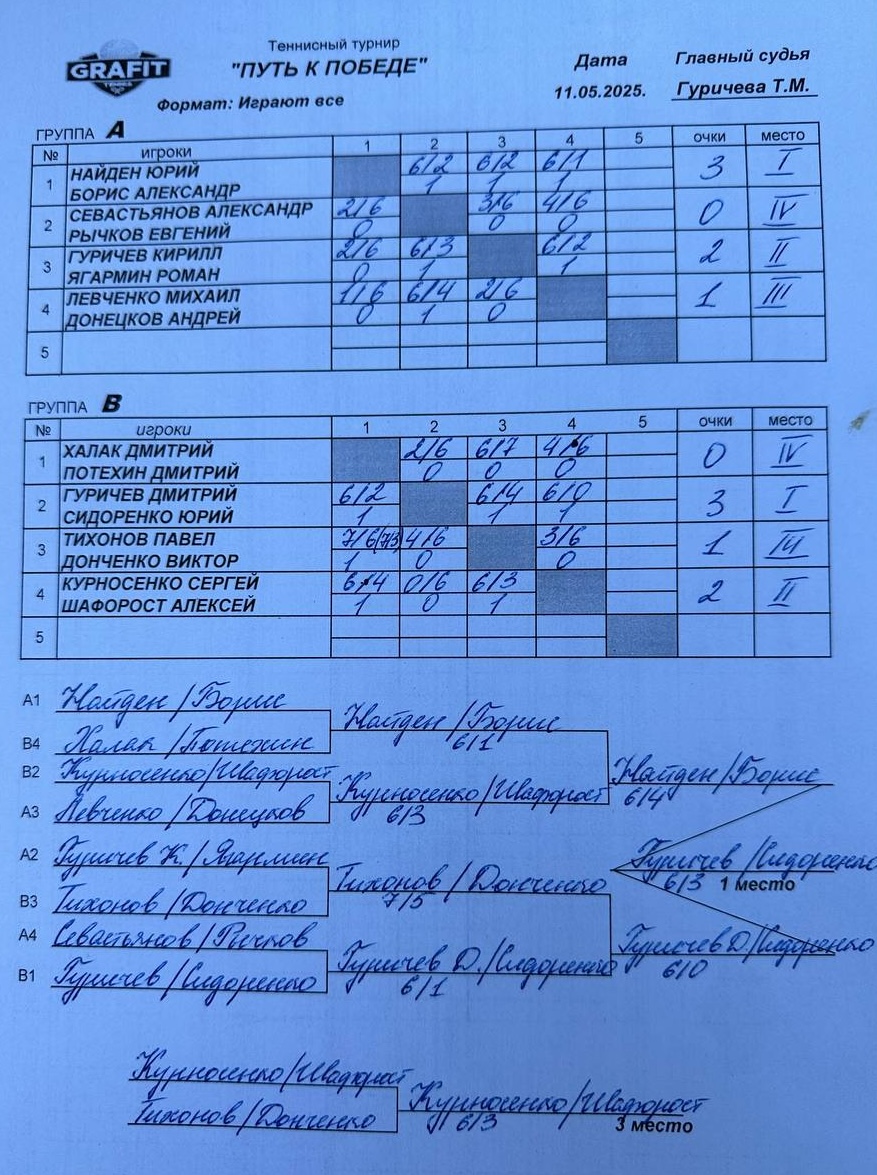 GRAFIT
Теннисный турнир
"ПУТЬ К ПОБЕДЕ"
Формат: Играют все
Дата
11.05.2025.
Главный судья
Гуричева Т.М.
ГРУППА А
№ игроки 1 2 3 4 5 очки место
1 НАЙДЕН ЮРИЙ 6/2 6/2 6/1 3 I
БОРИС АЛЕКСАНДР 1 1 1
2 СЕВАСТЬЯНОВ АЛЕКСАНДР 2/6 3/6 4/6 0 IV
РЫЧКОВ ЕВГЕНИЙ 0 0 0
3 ГУРИЧЕВ КИРИЛЛ 2/6 6/3 6/2 2 II
ЯГАРМИН РОМАН 0 1 1
4 ЛЕВЧЕНКО МИХАИЛ 1/6 6/4 2/6 1 III
ДОНЕЦКОВ АНДРЕЙ 0 1 0
5
ГРУППА В
№ игроки 1 2 3 4 5 очки место
1 ХАЛАК ДМИТРИЙ 2/6 6/7 4/6 0 IV
ПОТЕХИН ДМИТРИЙ 0 0 0
2 ГУРИЧЕВ ДМИТРИЙ 6/2 6/4 6/0 3 I
СИДОРЕНКО ЮРИЙ 1 1 1
3 ТИХОНОВ ПАВЕЛ 7/6(7/3) 4/6 3/6 1 III
ДОНЧЕНКО ВИКТОР 1 0 0
4 КУРНОСЕНКО СЕРГЕЙ 6/4 0/6 6/3 2 II
ШАФОРОСТ АЛЕКСЕЙ 1 0 1
5
А1 Найден/Борис
Найден/Борис
6/1
В4 Халак/Потехин
В2 Курносенко/Шафорост
Найден/Борис
6/4
Курносенко/Шафорост
6/3
А3 Левченко/Донецков
А2 Гуричев К./Ягармин
Гуричев/Сидоренко
6/3 1 место
Тихонов/Донченко
7/5
В3 Тихонов/Донченко
А4 Севастьянов/Рычков
Гуричев Д./Сидоренко
6/0
Гуричев Д./Сидоренко
6/1
В1 Гуричев/Сидоренко
Курносенко/Шафорост
Курносенко/Шафорост
6/3 3 место
Тихонов/Донченко